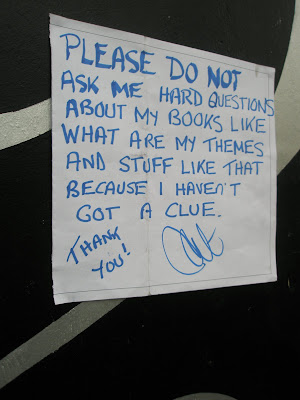 PLEASE DO NOT
ASK ME HARD QUESTIONS
ABOUT MY BOOKS LIKE
WHAT ARE MY THEMES
AND STUFF LIKE THAT
BECAUSE I HAVEN'T
GOT A CLUE.
THANK
YOU!